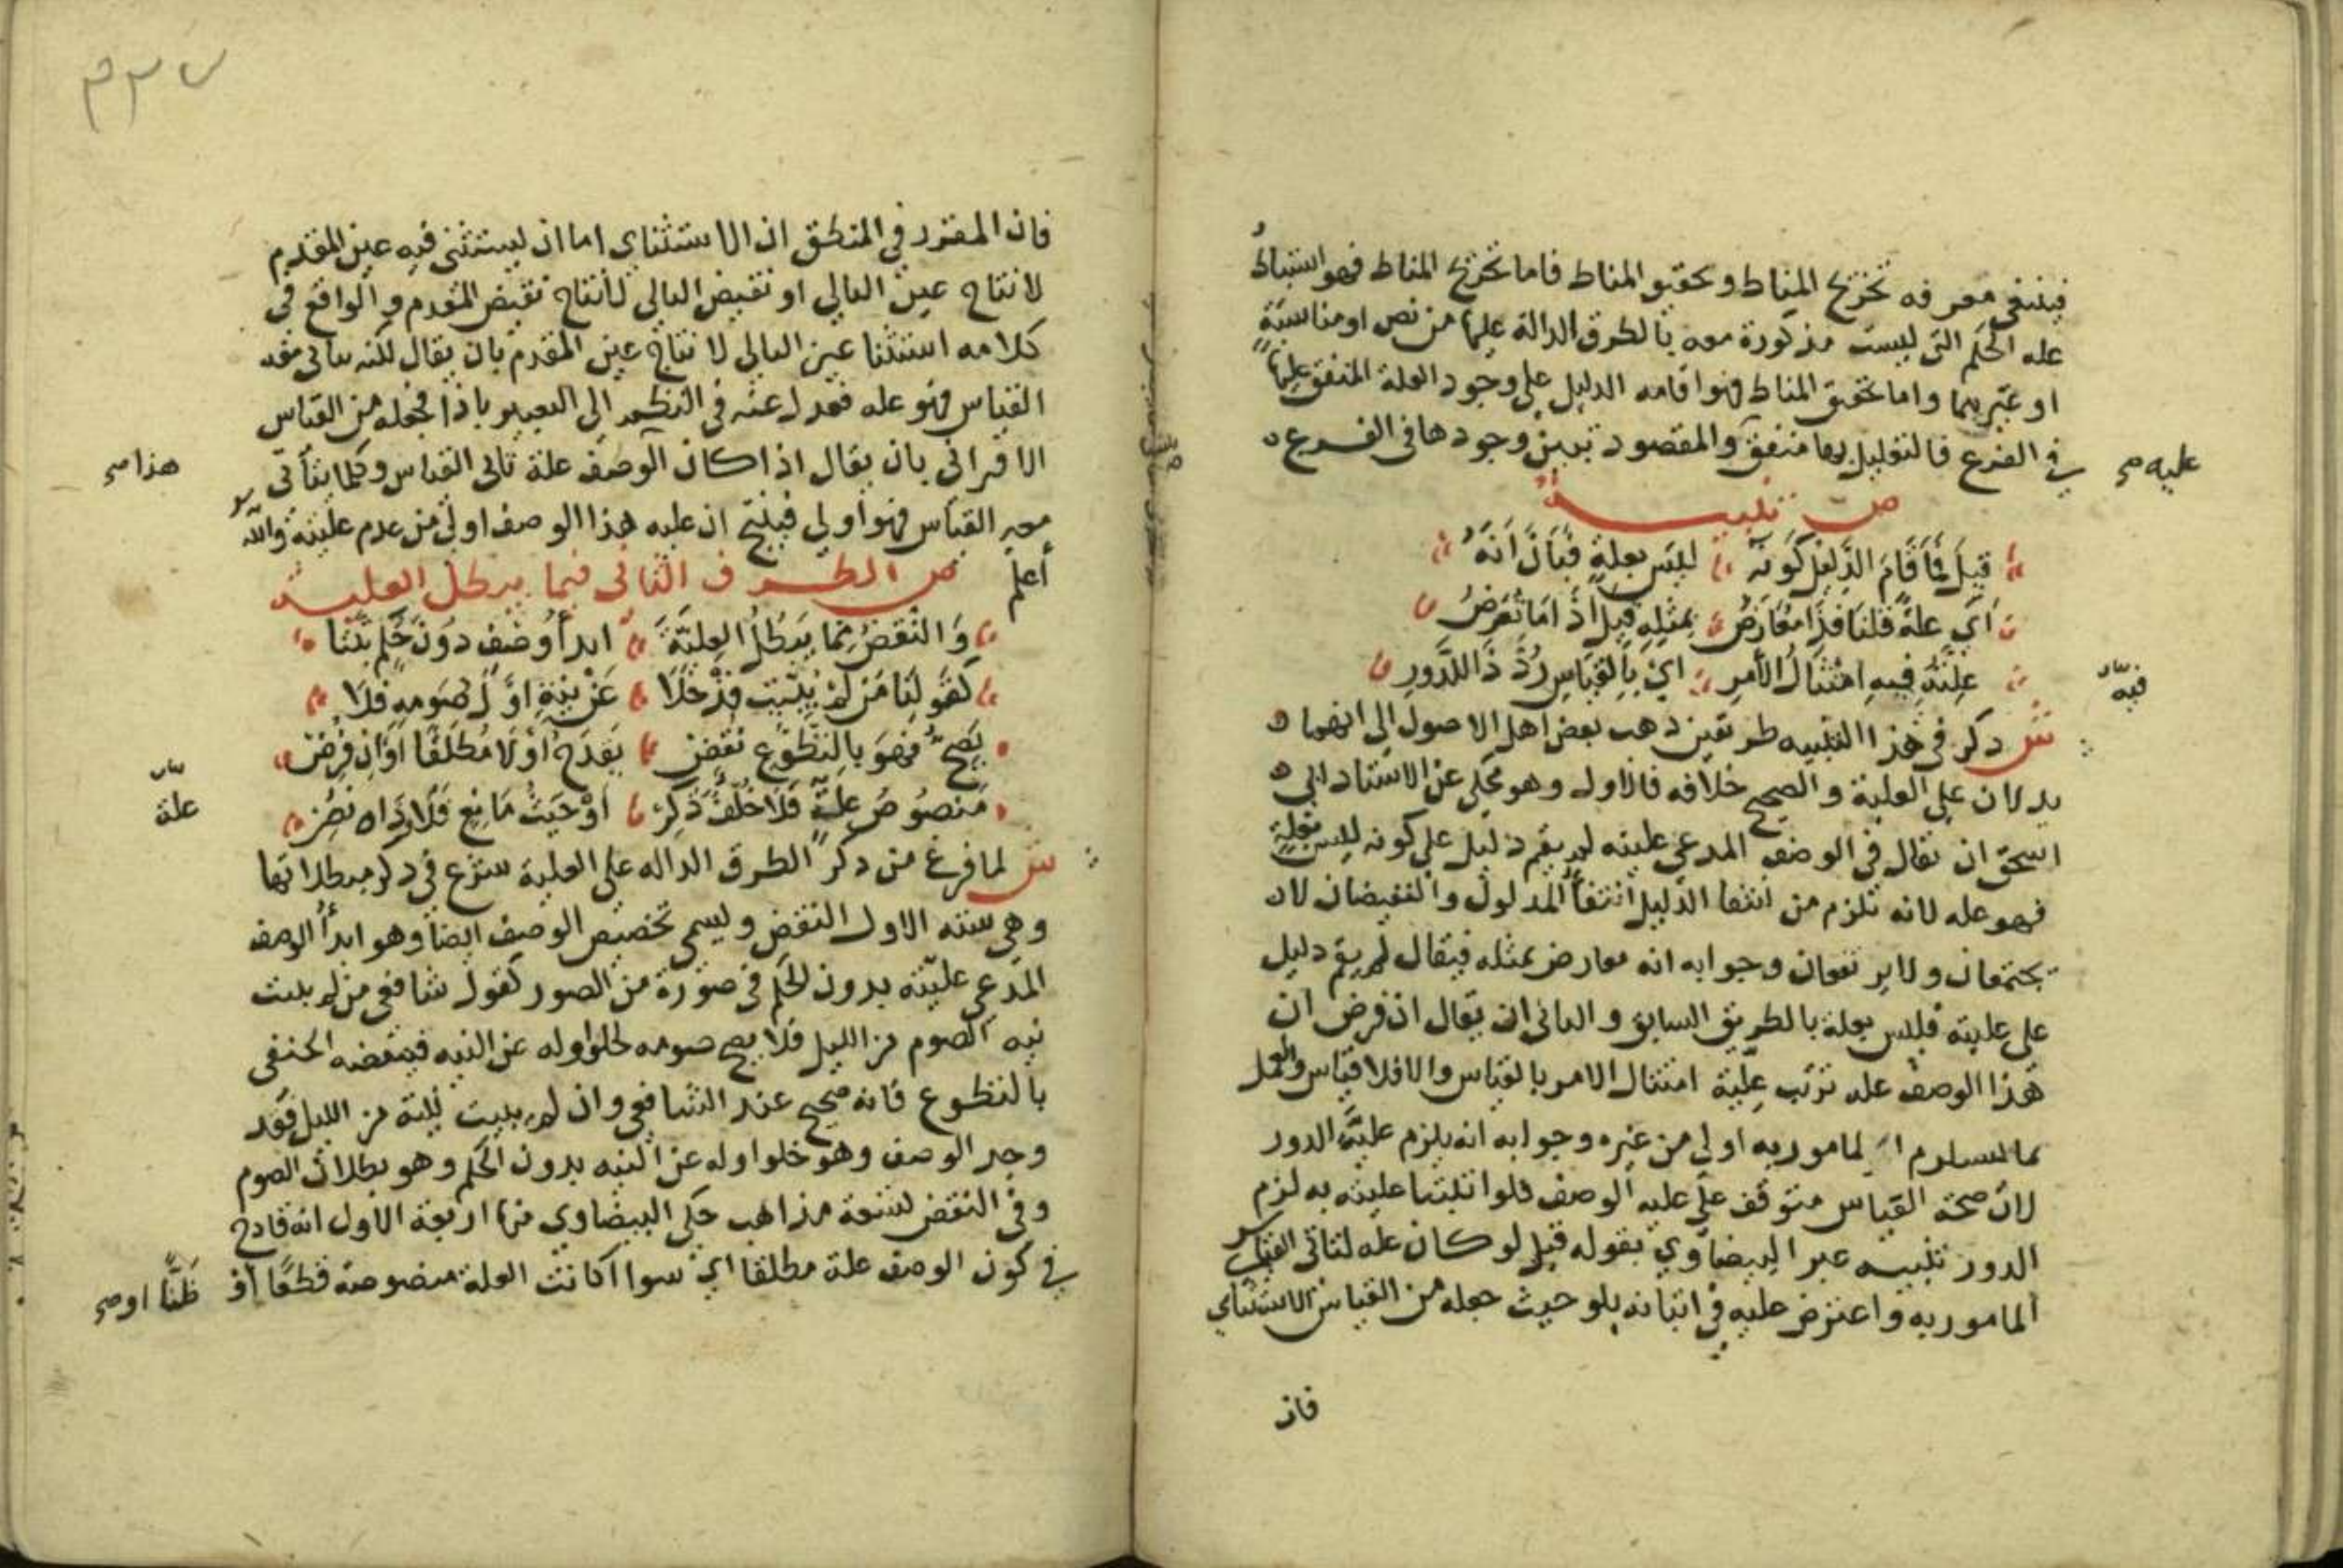 فينبغي معرفه تخريج المناط وتحقيق المناط فاما تخريج المناط فهو استنباط
عله الحكم التي ليست مذكورة معه بالطرق الدالة عليها من نص او مناسبة
او غيرهما واما تحقيق المناط فهو اقامه الدليل على وجود العلة المتفق عليها
في الفرع فالتعليل بها متفق والمقصود تبيين وجودها في الفرع ه
عليه صح
ص تنبيه
قيل فما قام الدليل كونه ليس بعلة فبان انه
اي علة قلنا فذا معارض بمثله قيل اذا ما تعرض
علته فيه امتثال الأمر اي بالقياس رد ذا للدور
بيان
فيه
ش ذكر في هذا التنبيه طريقين ذهب بعض اهل الاصول الى انهما
يدلان على العلية والصحيح خلافه فالاول وهو محكي عن الاستاد ابي
اسحق ان يقال في الوصف المدعي عليته لم يقم دليل على كونه ليس بعلة
فهو عله لانه يلزم من انتفا الدليل انتفأ المدلول والنقيضان لا
يجتمعان ولا يرتفعان وجوابه انه معارض بمثله فيقال لم يقم دليل
على عليته فليس بعلة بالطريق السابق والثاني ان يقال ان فرض ان
هذا الوصف عله ترتب علية امتثال الامر بالقياس والا فلا قياس والعمل
بما يستلزم المامور به اولى من غيره وجوابه انه يلزم عليه الدور
لان صحة القياس متوقف على عليه الوصف فلو اثبتنا عليته به لزم
الدور تنبيه عبر البيضاوي بقوله قيل لو كان عله لتاتى القياس
المامور به واعترض عليه في اتيانه بلو حيث جعله من القياس الاستثناي
فان
٢٣٧
فان المقرر في المنطق ان الاستثناي اما ان يستثني فيه عين المقدم
لانتاج عين التالي او نقيض التالي لانتاج نقيض المقدم والواقع في
كلامه استثنا عين التالي لانتاج عين المقدم بان يقال لكنه يتاتى معه
القياس فهو عله فعدل عنه في النظم الى التعبير باذا فجعله من القياس
الاقتراني بان يقال اذا كان الوصف علة تاتى القياس وكلما يتأتى
هذا صح
معه القياس فهو أولى فينتج ان عليه هذا الوصف اولى من عدم عليته والله
أعلم ص الطرف الثاني فيما يبطل العلية
والنقض مما يبطل العلية ابدأ وصف دون حكم بتنا
كقولنا من لم يبيت قد خلا عن نية اول صومه فلا
يصح فهو بالتطوع نقض يقدح او لا مطلقا او ان فرض
منصوص علة فلا خلف ذكر او حيث مانع فلا وذاه نصر
بيان
علة
ش لما فرغ من ذكر الطرق الداله على العلية شرع في ذكر مبطلاتها
وهي سته الاول النقض ويسمى تخصيص الوصف ايضا وهو ابدأ الوصف
المدعي عليته بدون الحكم في صورة من الصور كقول شافعي من لم يبيت
نيه الصوم من الليل فلا يصح صومه لخلو اوله عن النيه فينقضه الحنفي
بالتطوع فانه صحيح عند الشافعي وان لم يبيت نيته من الليل فقد
وجد الوصف وهو خلو اوله عن النيه بدون الحكم وهو بطلان الصوم
وفي النقض تسعة مذاهب حكى البيضاوي منها اربعة الاول انه قادح
في كون الوصف علة مطلقا اي سوا اكانت العلة منصوصة قطعا او
ظنا او صح